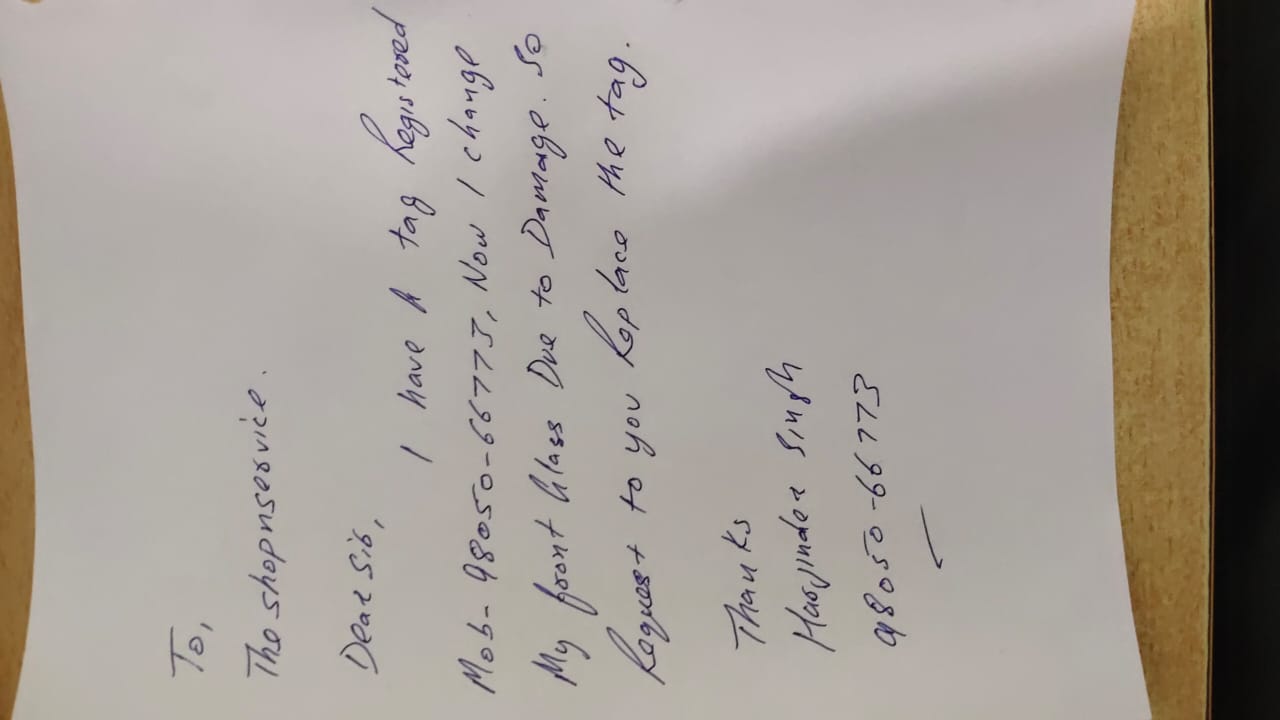 To,
Theshopnservice.
Dear Sir,
I have A tag Registered
Mob- 98050-66773, Now I change
My front Glass Due to Damage. So
Request to you Replace the tag.
Thanks
Harjinder Singh
98050-66773